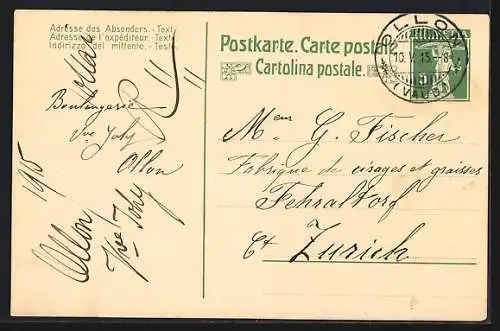 Adresse des Absenders. - Text.
Adresse de l'expéditeur. - Texte.
Indirizzo del mittente. - Testo.
Postkarte. Carte postale.
Cartolina postale.
OLLON
10. V. 15.-8
(VAUD)
Boulangerie
Vve Joly
Ollon
Ollon 1915
Vve Joly
11
11
G. Fischer
Fabrique de cirages et graisses
Fehraltorf
Ct Zurich